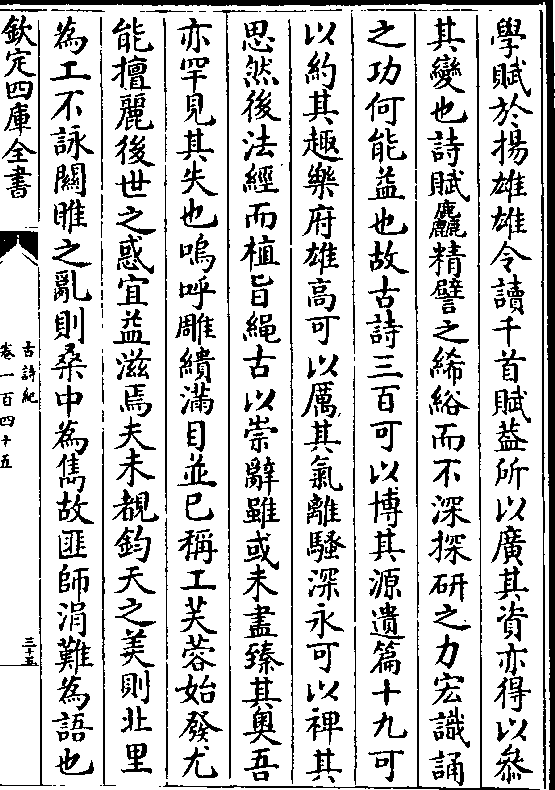 學賦於揚雄雄令讀千首賦葢所以廣其資亦得以叅
其變也詩賦麤精譬之絺綌而不深探研之力宏識誦
之功何能益也故古詩三百可以博其源遺篇十九可
以約其趣樂府雄高可以厲其氣離騷深永可以禆其
思然後法經而植旨繩古以崇辭雖或未盡臻其奥吾
亦罕見其失也嗚呼雕繢滿目並已稱工芙蓉始發尤
能擅麗後世之惑宜益滋焉夫未覩鈞天之美則北里
為工不詠關雎之亂則桑中為雋故匪師涓難為語也
欽定四庫全書
古詩紀
卷一百四十五
三十五